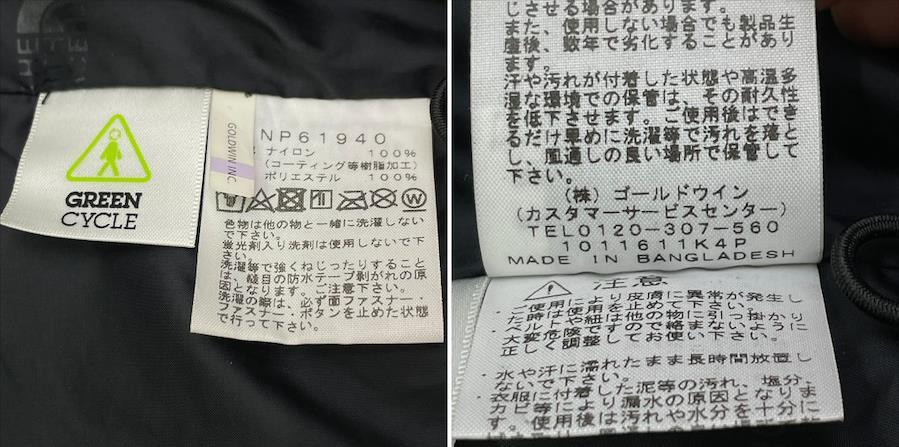 THE
GREEN
CYCLE
GOLDWIN INC.
NP61940
ナイロン 100%
(コーティング等樹脂加工)
ポリエステル 100%
色物は他の物と一緒に洗濯しない
で下さい。
蛍光剤入り洗剤は使用しないで下
さい。
洗濯等で強くねじったりすること
は、縫目の防水テープ剥がれの原
因となります。ご注意下さい。
洗濯の際は、必ず面ファスナー・
ファスナー・ボタンを止めた状態
で行って下さい。
じさせる場合があります。
また、使用しない場合でも製品生
産後、数年で劣化することがあり
ます。
汗や汚れが付着した状態や高温多
湿な環境での保管は、その耐久性
を低下させます。ご使用後はでき
るだけ早めに洗濯等で汚れを落と
し、風通しの良い場所で保管して
下さい。
(株) ゴールドウイン
(カスタマーサービスセンター)
TEL0120-307-560
1011611K4P
MADE IN BANGLADESH
注意
・ご使用により皮膚に異常が発生し
た時は使用を止めて下さい。
・ベルトや紐は他の物に引っ掛かり
大変危険ですので絡まないように
正しく調整してお使い下さい。
・水や汗に濡れたまま長時間放置し
ないで下さい。
・衣服に付着した泥等の汚れ、塩分、
カビ等により漏水の原因となりま
す。使用後は汚れや水分を十分に